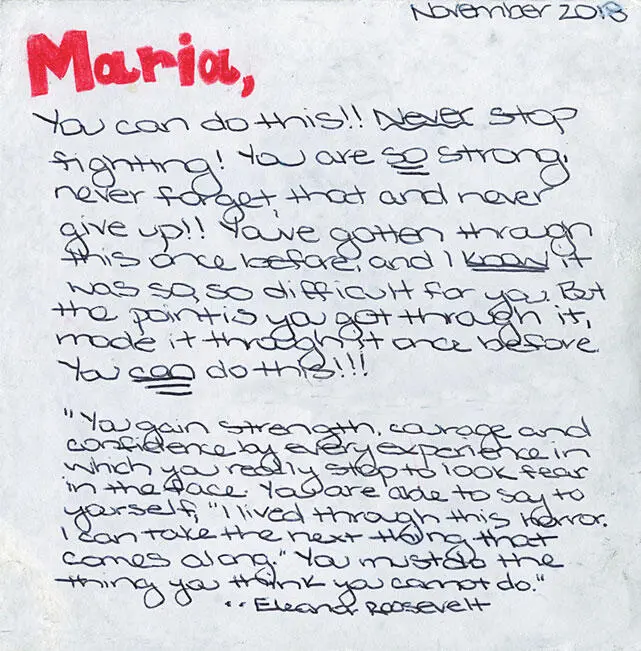 November 2018
Maria,
You can do this!! Never stop
fighting! You are so strong,
never forget that and never
give up!! You've gotten through
this once before, and I know it
was so, so difficult for you. But
the point is you got through it,
made it through it once before.
You can do this!!!
"You gain strength, courage and
confidence by every experience in
which you really stop to look fear
in the face. You are able to say to
yourself, "I lived through this horror.
I can take the next thing that
comes along." You must do the
thing you think you cannot do."
-- Eleanor Roosevelt